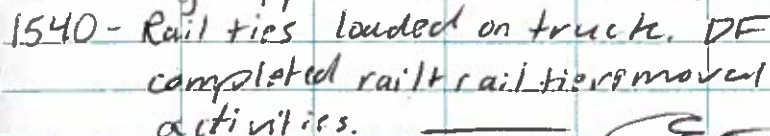 1540- Rail ties loaded on truck. DF
completed rail+rail tie removal
activities.